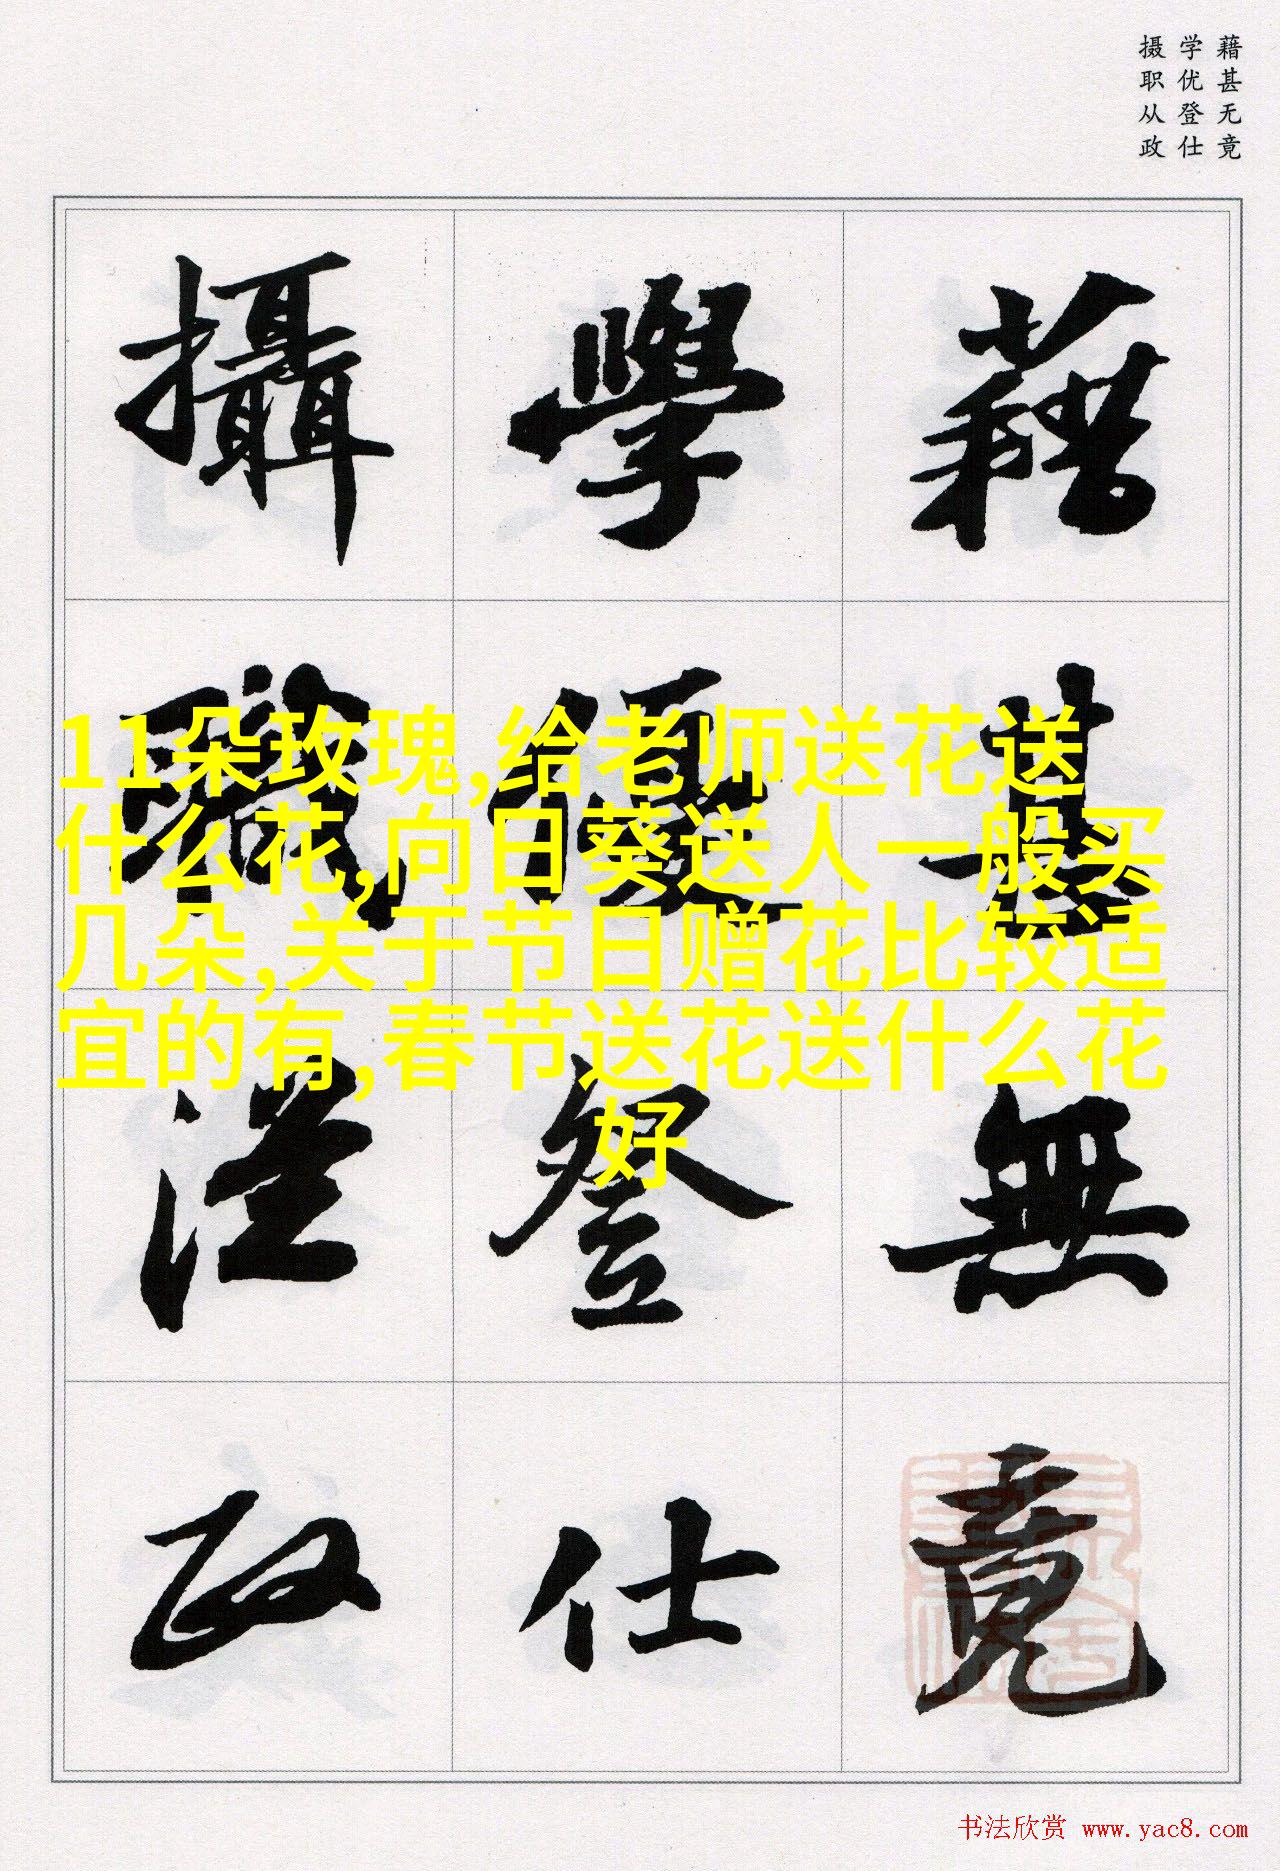 藉甚无竟
学优登仕
摄职从政
藉甚無竟
學優登仕
攝職從政
11朵玫瑰,给老师送花送
什么花,向日葵送人一般买
几朵,关于节日赠花比较适
宜的有,春节送花送什么花
好
书法欣赏 www.yac8.com